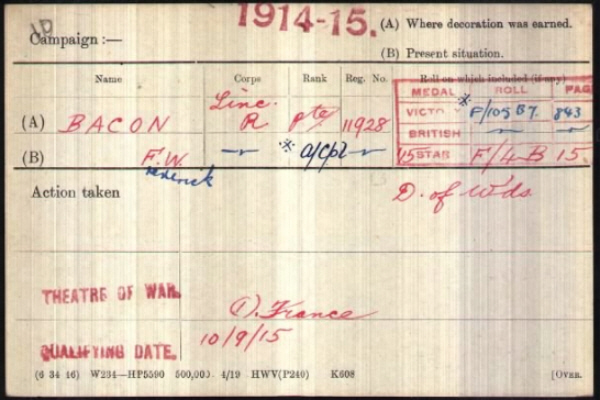 1914-15.
(A) Where decoration was earned.
Campaign :—
(B) Present situation.
Name Corps Rank Reg. No. Roll on which included (if any)
MEDAL ROLL PAGE
(A) BACON Linc. R Pte 11928 VICTORY * F/105 B7. 843
BRITISH
(B) F.W. Frederick * a/Cpl 15 STAR F/4B 15
Action taken D. of Wds
THEATRE OF WAR. (1). France
QUALIFYING DATE. 10/9/15
(6 34 46) W234—HP5590 500,000 4/19 HWV(P240) K608 [OVER.